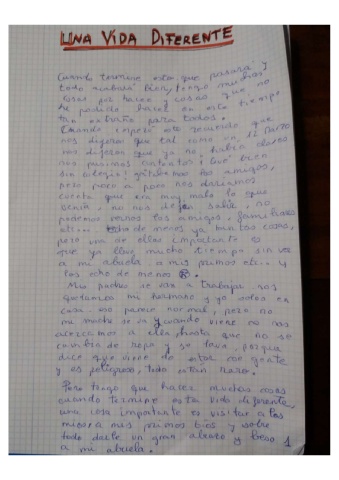 UNA VIDA DIFERENTE
Cuando termine esto que pasará y
todo acabará bien, tengo muchas
cosas por hacer y cosas que no
he podido hacer en este tiempo
tan extraño para todos.
Cuando empezó esto recuerdo que
nos dijeron que tal como un 12 Marzo
nos dijeron que ya no había clases
nos pusimos contentos! Qué bien
sin colegio! gritábamos los amigos,
pero poco a poco nos dábamos
cuenta que era muy malo lo que
venía, no nos dejan salir, no
podemos vernos los amigos, familiares
etc... echo de menos ya tantas cosas,
pero una de ellas importante es
que ya llevo mucho tiempo sin ver
a mi abuela, a mis primos etc... y
los echo de menos.
Mis padres se van a trabajar, nos
quedamos mi hermano y yo solos en
casa. eso parece normal, pero no
mi madre se va y cuando viene no nos
acercamos a ella hasta que no se
cambia de ropa y se lava, porque
dice que viene de estar con gente
y es peligroso, todo es tan raro.
Pero tengo que hacer muchas cosas
cuando termine esta vida diferente,
una cosa importante es visitar a los
míos, a mis primos, tíos y sobre
todo darle un gran abrazo y beso
a mi abuela.
1